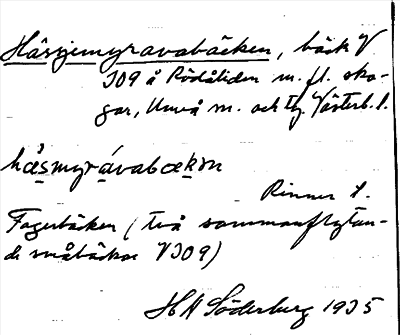 Håsjemyravabäcken, bäck V
309 å Rödåliden m. fl. sko-
gar, Umeå m. och tg. Västerb. l.
håsmyrávabækɲ
Rinner t.
Fagerbäcken (två sammanflytan-
de småbäckar V 309)
HN Söderburg 1935